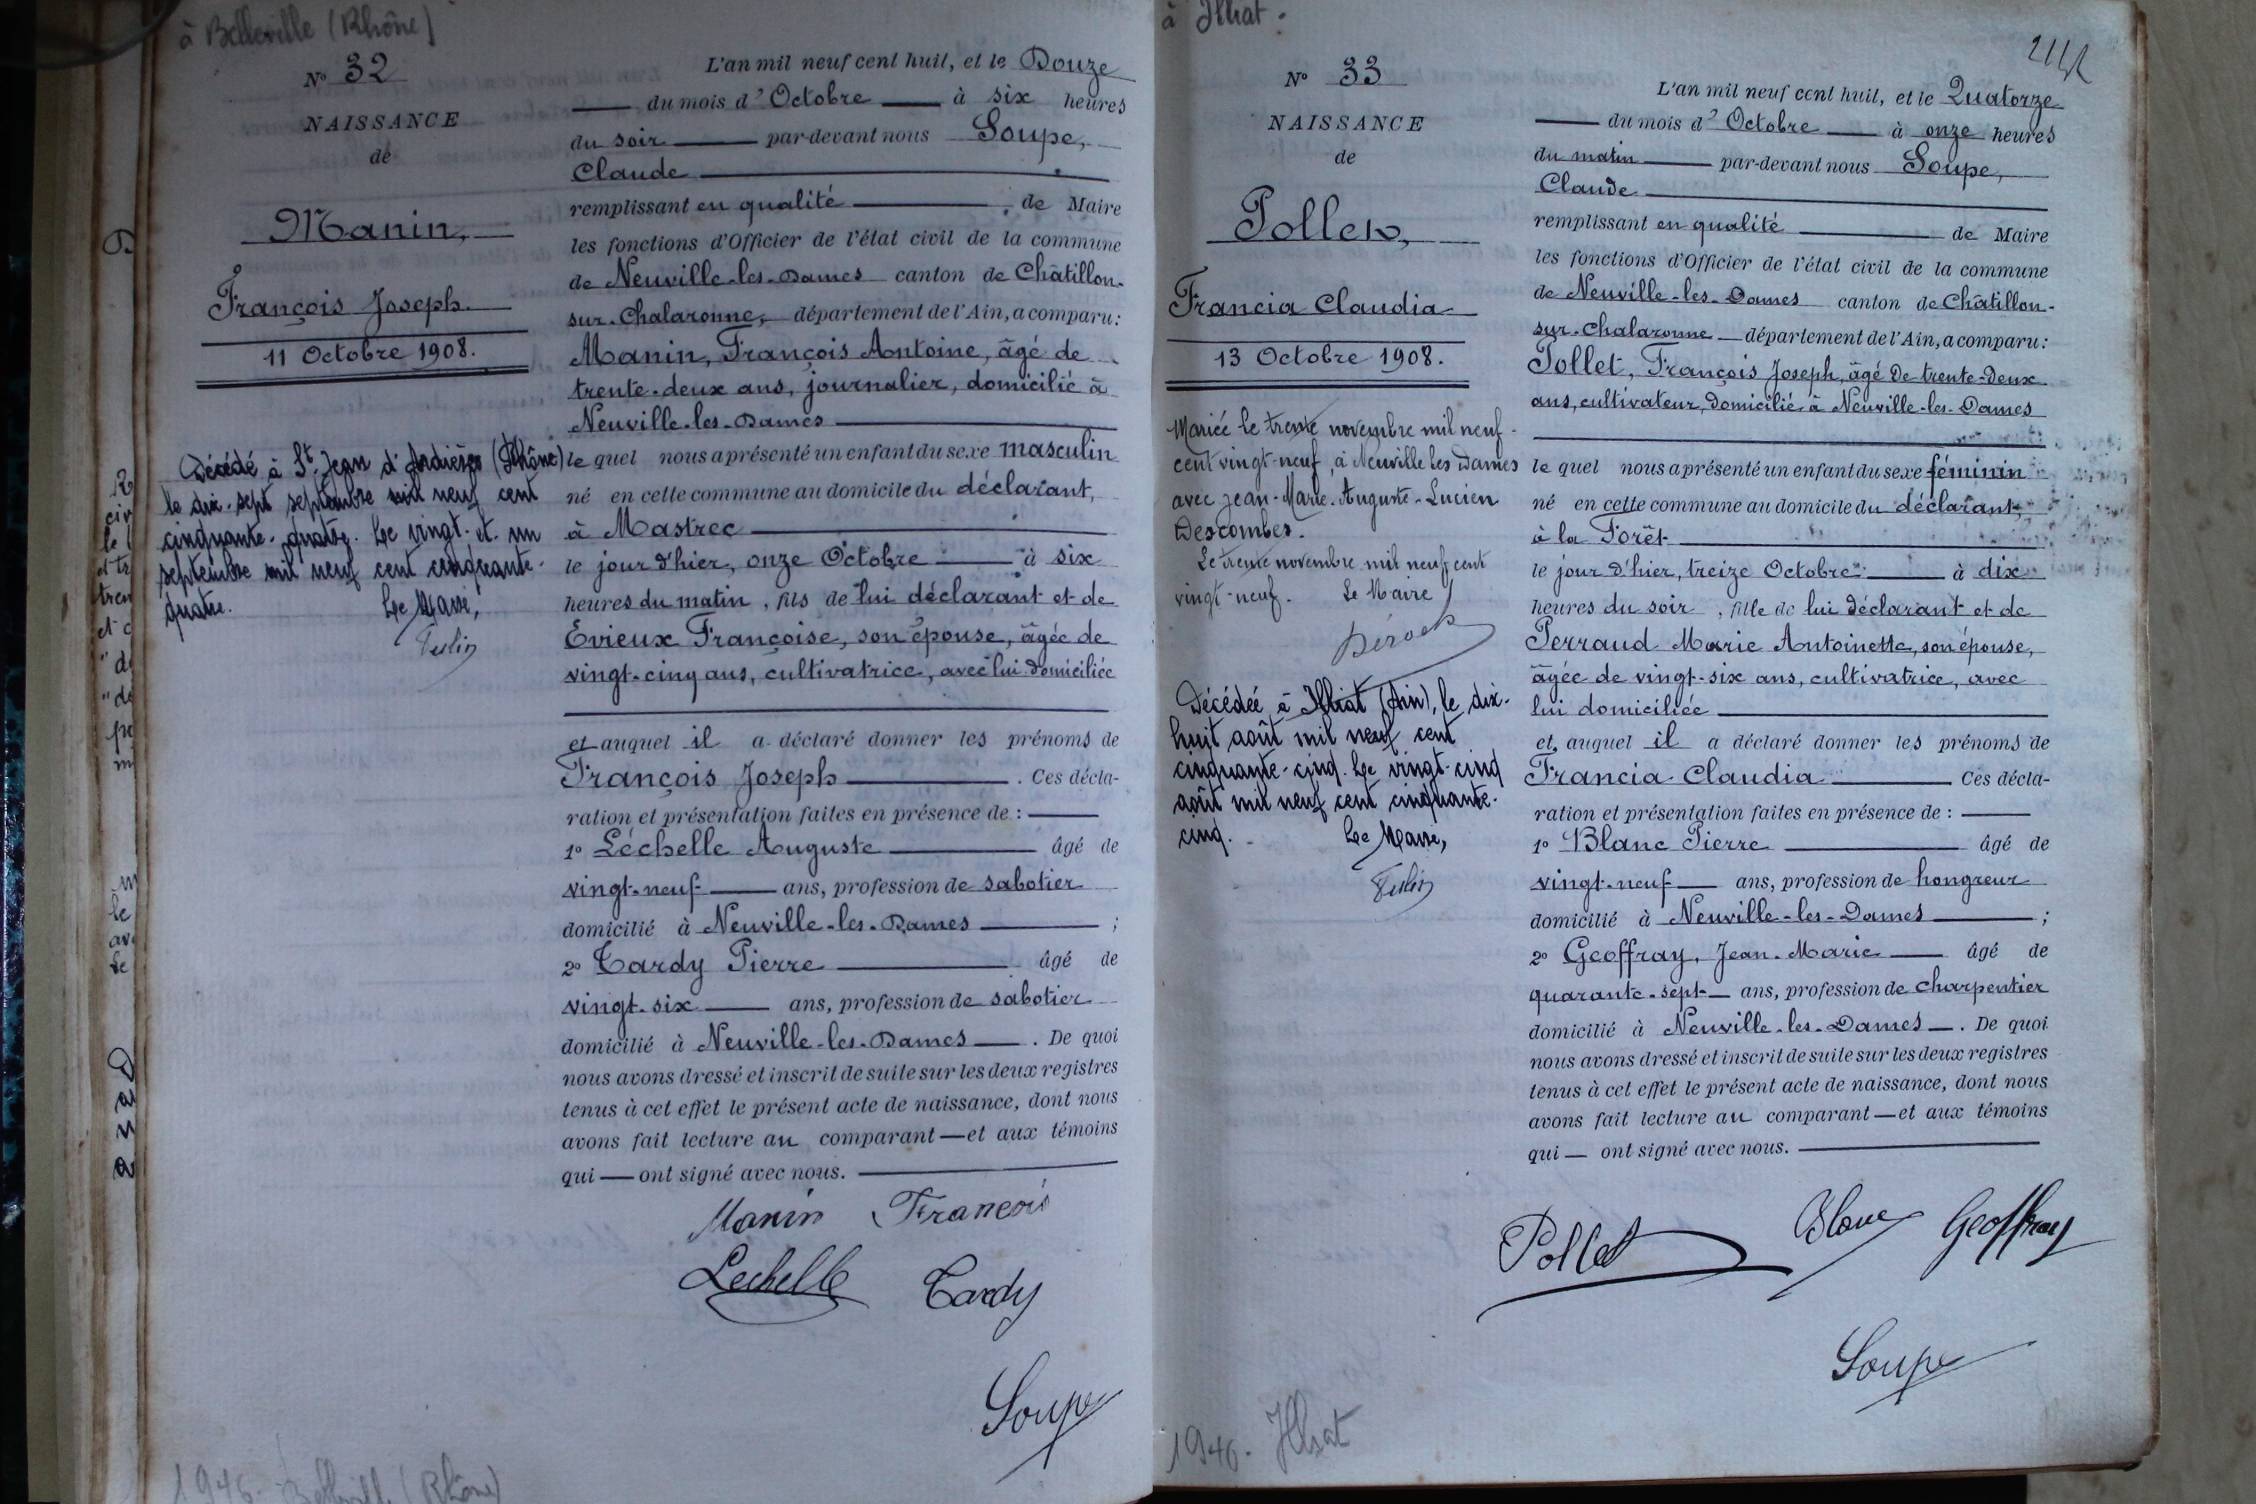 à Belleville (Rhône)
N° 32
NAISSANCE
de
Manin,
François Joseph
11 Octobre 1908.
Décédé à St. Jean d'Ardières (Rhône)
le dix-sept septembre mil neuf cent
cinquante-quatre. Le vingt-et-un
septembre mil neuf cent cinquante-
quatre. Le Maire,
L'an mil neuf cent huit, et le Douze
du mois d'Octobre à six heures
du soir par-devant nous Soupe,
Claude
remplissant en qualité de Maire
les fonctions d'Officier de l'état civil de la commune
de Neuville-les-Dames canton de Châtillon-
sur-Chalaronne, département de l'Ain, a comparu:
Manin, François Antoine, âgé de
trente-deux ans, journalier, domicilié à
Neuville-les-Dames
le quel nous a présenté un enfant du sexe masculin
né en cette commune au domicile du déclarant,
à Mastrec
le jour d'hier, onze Octobre à six
heures du matin, fils de lui déclarant et de
Evieux Françoise, son épouse, âgée de
vingt-cinq ans, cultivatrice, avec lui domiciliée
et auquel il a déclaré donner les prénoms de
François Joseph. Ces décla-
ration et présentation faites en présence de :
1° Léchelle Auguste âgé de
vingt-neuf ans, profession de sabotier
domicilié à Neuville-les-Dames ;
2° Tardy Pierre âgé de
vingt-six ans, profession de sabotier
domicilié à Neuville-les-Dames. De quoi
nous avons dressé et inscrit de suite sur les deux registres
tenus à cet effet le présent acte de naissance, dont nous
avons fait lecture au comparant—et aux témoins
qui — ont signé avec nous.
Manin François
Lechelle Tardy
Soupe
1946. Belleville (Rhône)
à Illiat.
N° 33
NAISSANCE
de
Pollet,
Francia Claudia
13 Octobre 1908.
Mariée le trente novembre mil neuf-
cent vingt-neuf, à Neuville les Dames
avec Jean-Marie-Auguste-Lucien
Descombes.
Le trente novembre mil neuf cent
vingt-neuf. Le Maire
Décédée à Illiat (Ain), le dix-
huit août mil neuf cent
cinquante-cinq. Le vingt-cinq
août mil neuf cent cinquante-
cinq. Le Maire,
L'an mil neuf cent huit, et le Quatorze
du mois d'Octobre à onze heures
du matin par-devant nous Soupe,
Claude
remplissant en qualité de Maire
les fonctions d'Officier de l'état civil de la commune
de Neuville-les-Dames canton de Châtillon-
sur-Chalaronne département de l'Ain, a comparu:
Pollet, François Joseph, âgé de trente-deux
ans, cultivateur, domicilié à Neuville-les-Dames
le quel nous a présenté un enfant du sexe féminin
né en cette commune au domicile du déclarant,
à la Forêt
le jour d'hier, treize Octobre à dix
heures du soir, fille de lui déclarant et de
Perraud Marie Antoinette, son épouse,
âgée de vingt-six ans, cultivatrice, avec
lui domiciliée
et, auquel il a déclaré donner les prénoms de
Francia Claudia Ces décla-
ration et présentation faites en présence de :
1° Blanc Pierre âgé de
vingt-neuf ans, profession de hongreur
domicilié à Neuville-les-Dames ;
2° Geoffray, Jean-Marie âgé de
quarante-sept ans, profession de charpentier
domicilié à Neuville-les-Dames. De quoi
nous avons dressé et inscrit de suite sur les deux registres
tenus à cet effet le présent acte de naissance, dont nous
avons fait lecture au comparant—et aux témoins
qui — ont signé avec nous.
Pollet Blanc Geoffray
Soupe
1946. Illiat